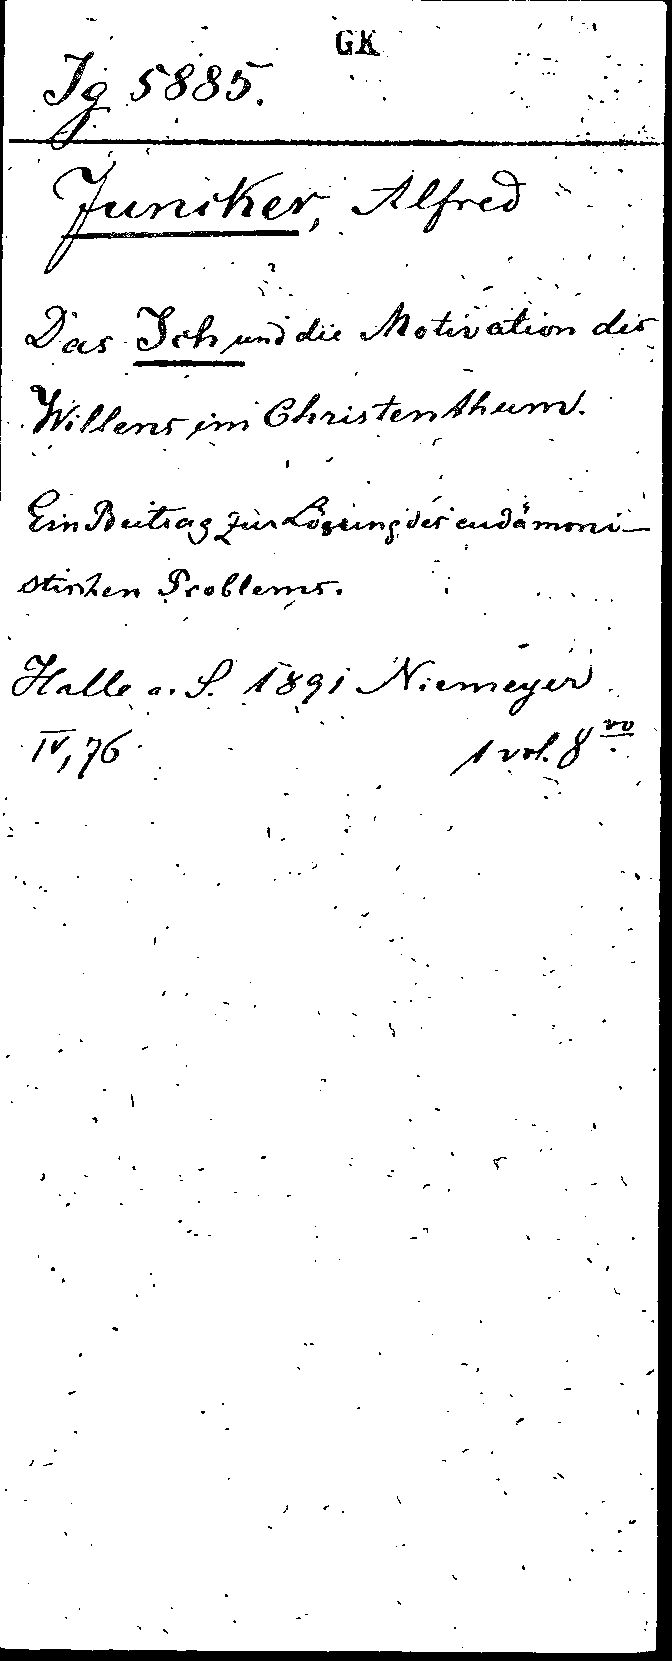 GK
Jg 5885.
Juncker, Alfred
Das Ich und die Motivation des
Willens im Christenthum.
Ein Beitrag zur Lösung des eudämoni-
stischen Problems.
Halle a. S. 1891 Niemeyer
IV, 76
1 vol. 8vo